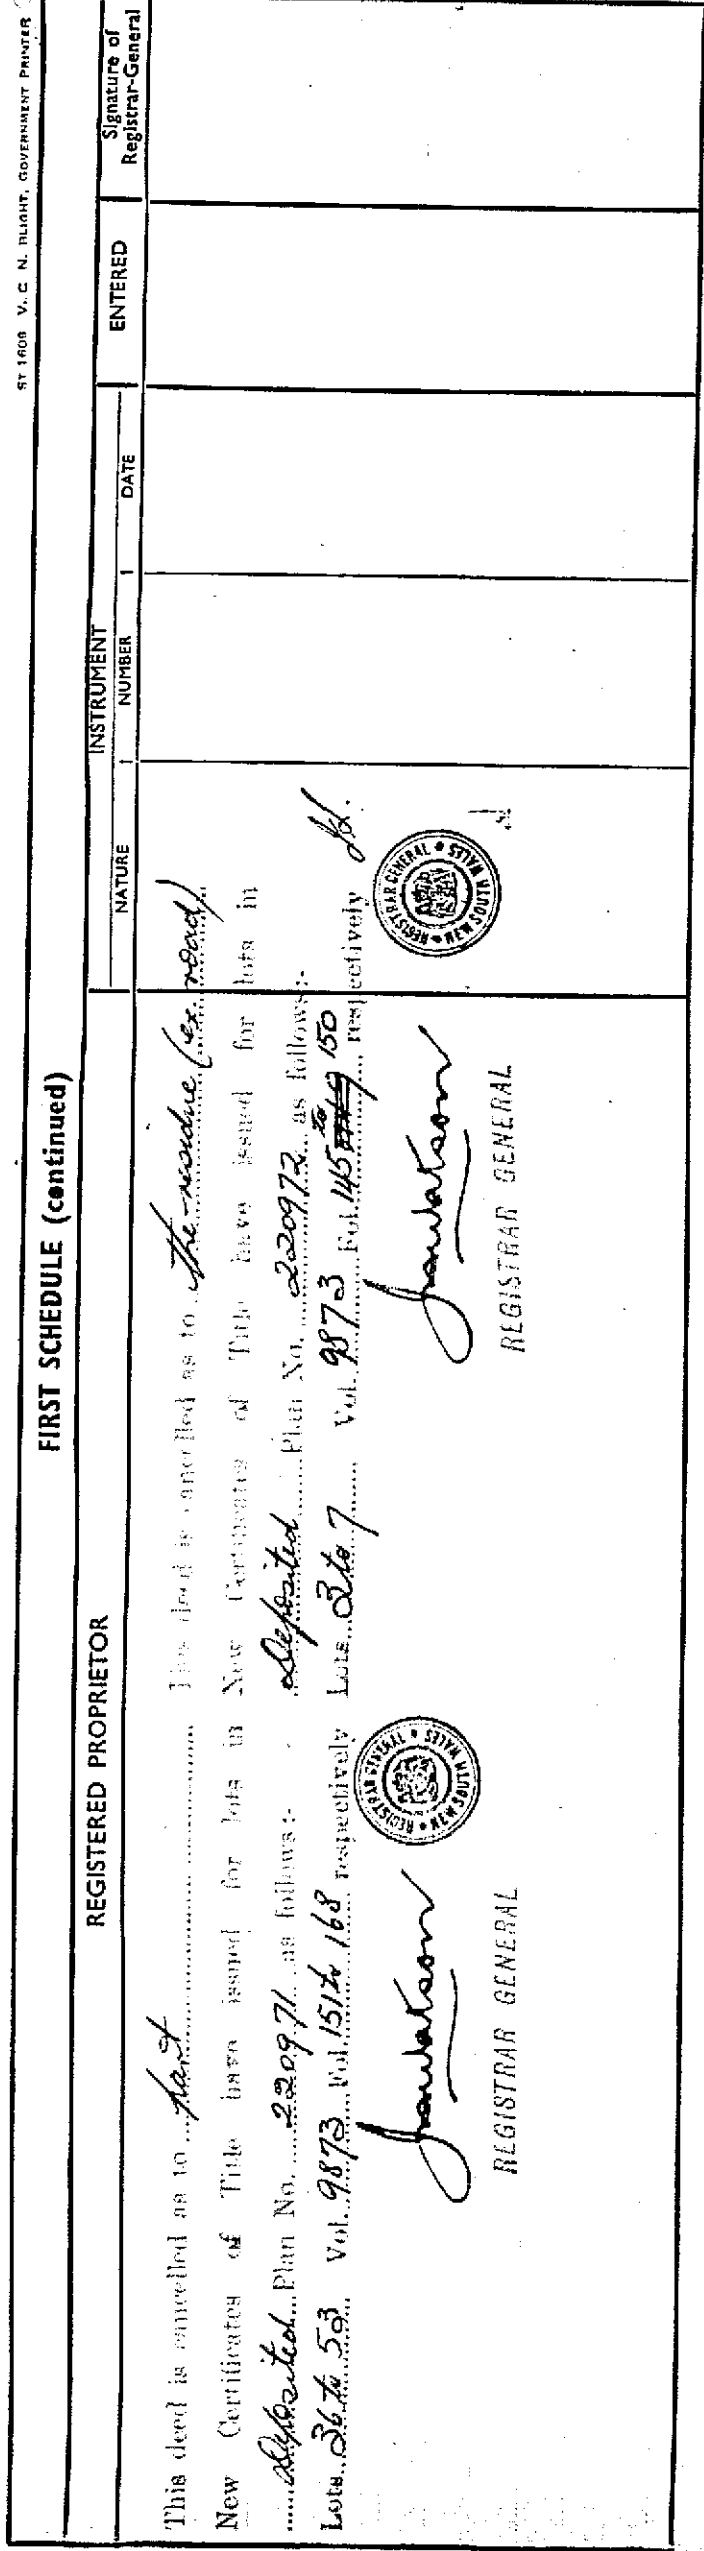 ST 1608 V. C. N. BLIGHT, GOVERNMENT PRINTER
FIRST SCHEDULE (continued)
REGISTERED PROPRIETOR
INSTRUMENT
NATURE
NUMBER
DATE
ENTERED
Signature of
Registrar-General
This deed is cancelled as to part
New Certificates of Title have issued for lots in
Deposited Plan No. 220971 as follows:-
Lots 36 to 53 Vol. 9873 Fol. 151 to 168 respectively
REGISTRAR GENERAL
REGISTRAR GENERAL • NEW SOUTH WALES •
This deed is cancelled as to the residue (ex. road)
New Certificates of Title have issued for lots in
Deposited Plan No. 220972 as follows:-
Lots 3 to 7 Vol. 9873 Fol. 145 to 150 respectively
REGISTRAR GENERAL
REGISTRAR GENERAL • NEW SOUTH WALES •